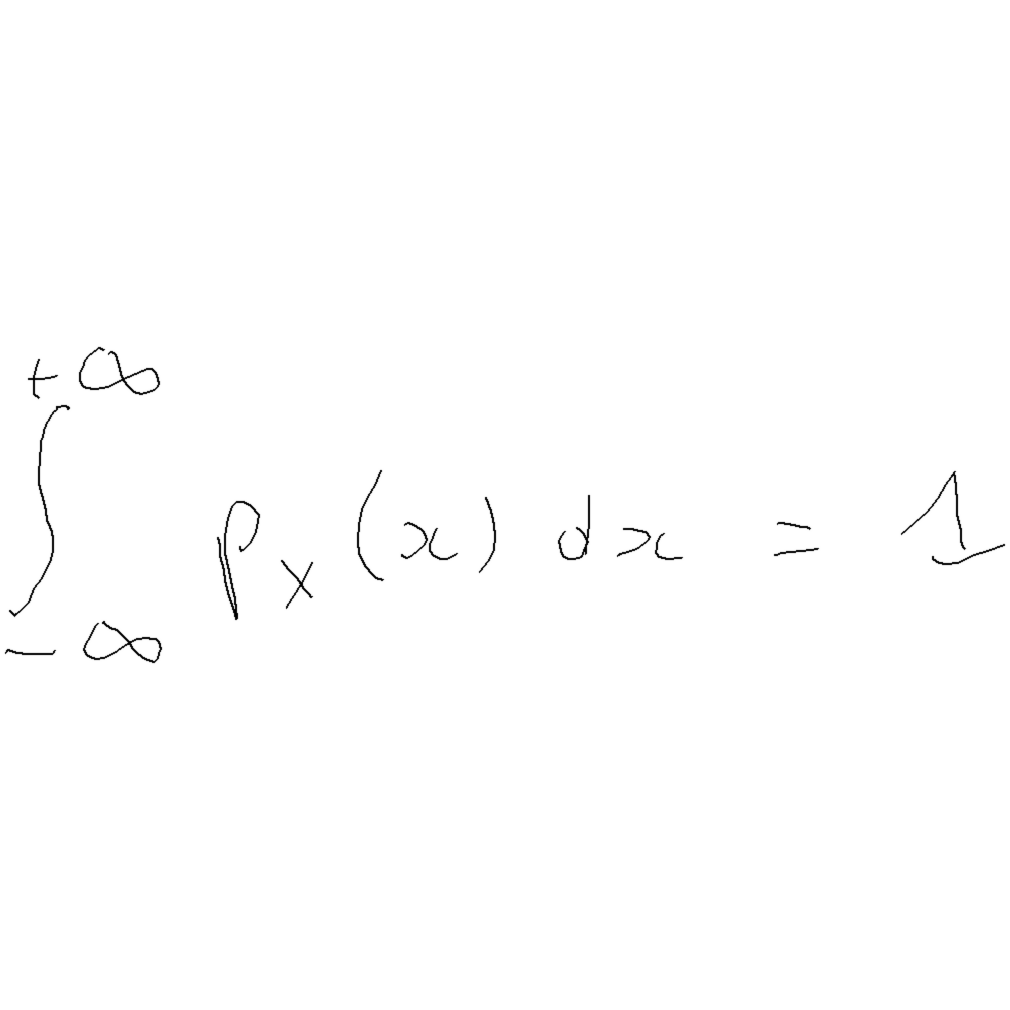 \int_{-\infty}^{+\infty} p_X(x) dx = 1